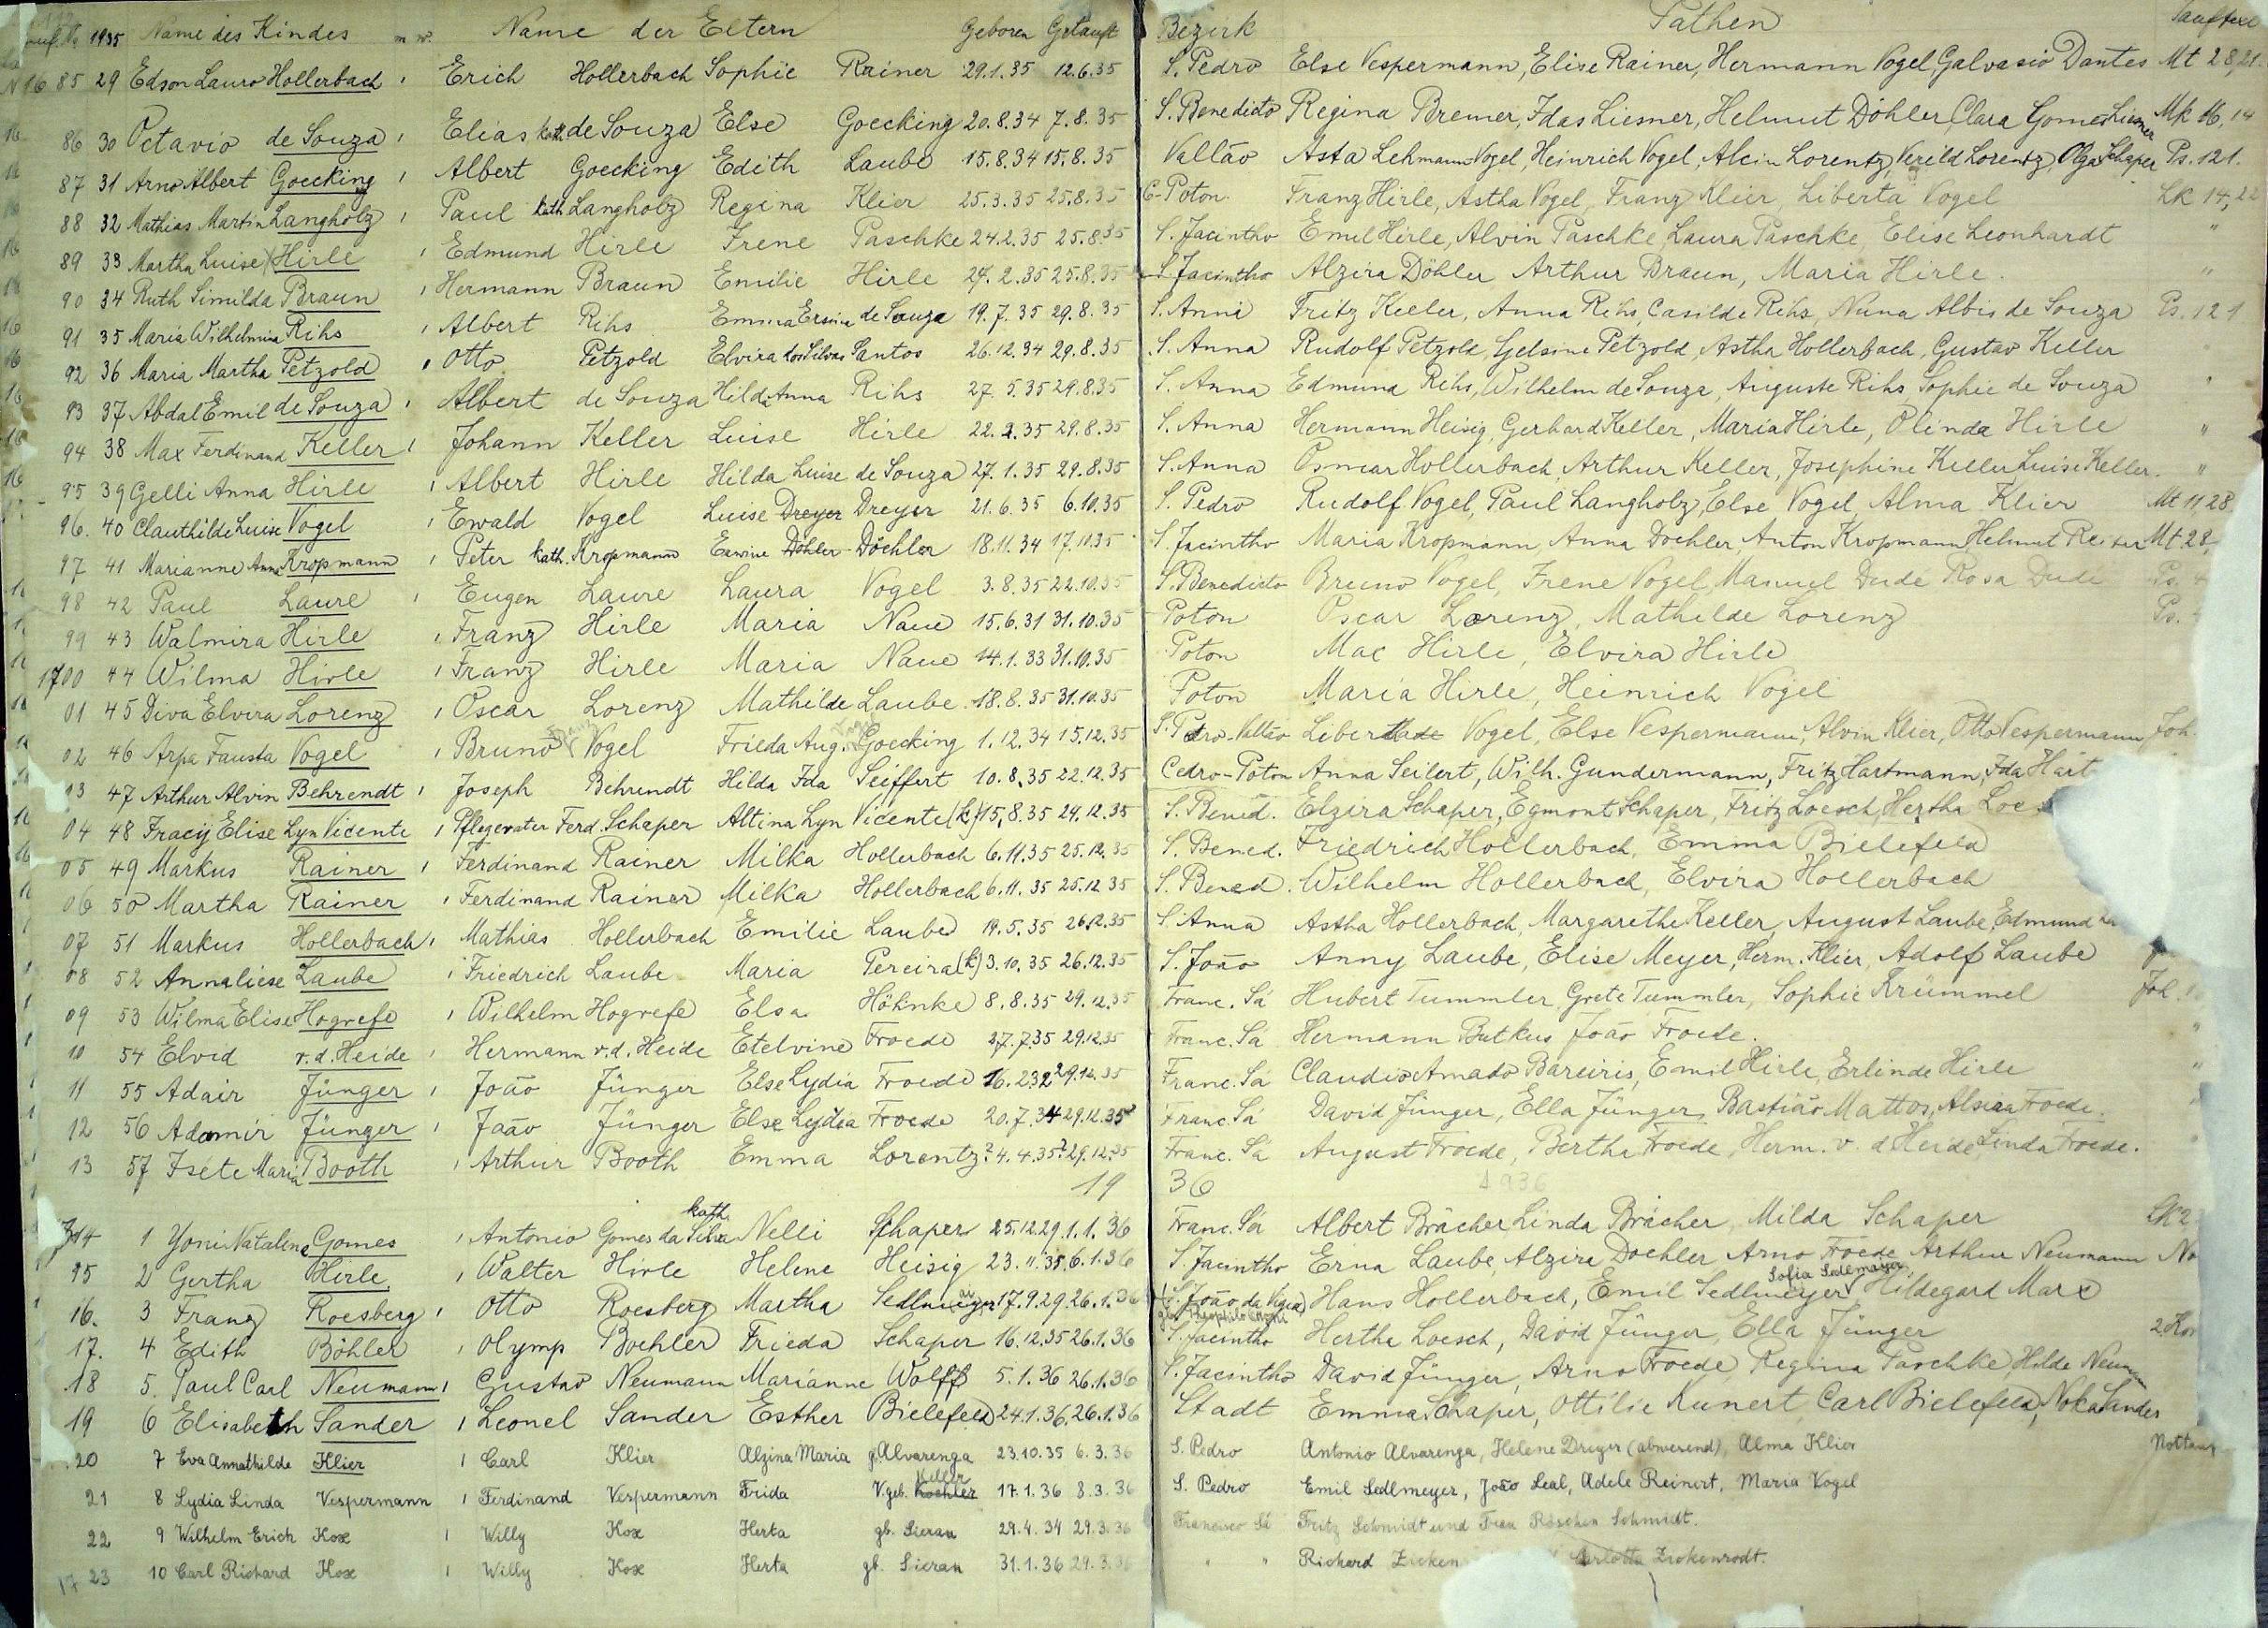 1935 Name des Kindes m w. Name der Eltern Geboren Getauft Bezirk Pathen Tauftext
N 16 85 29 Edson Lauro Hollerbach Erich Hollerbach Sophie Rainer 29.1.35 12.6.35 S. Pedro Else Vespermann, Elise Rainer, Hermann Vogel, Galvasio Dantes Mt 28,21
16 86 30 Octavio de Souza Elias kath de Souza Else Goecking 20.8.34 7.8.35 S. Benedicto Regina Bremer, Idas Liesner, Helmut Döhler, Clara Gomes Liesner Mk 16,14
87 31 Arno Albert Goecking Albert Goecking Edith Laube 15.8.34 15.8.35 Vallão Asta Lehmann Vogel, Heinrich Vogel, Alcin Lorentz, Lorentz, Olga Schaper Ps. 121.
88 32 Mathias Martin Langholz Paul kath Langholz Regina Klier 25.3.35 25.8.35 C-Poton Franz Hirle, Astha Vogel, Franz Klier, Liberta Vogel Lk 14,22
89 33 Martha Luise Hirle Edmund Hirle Irene Paschke 24.2.35 25.8.35 S. Jacintho Emil Hirle, Alvin Paschke, Laura Paschke, Elise Leonhardt "
90 34 Ruth Similda Braun Hermann Braun Emilie Hirle 24.2.35 25.8.35 S. Jacintho Alzira Döhler Arthur Braun, Maria Hirle. "
16 91 35 Maria Wilhelmina Rihs Albert Rihs Emma Ersina de Souza 19.7.35 29.8.35 S. Anna Fritz Keller, Anna Rihs, Casilde Rihs, Nuna Albis de Souza Ps. 121
16 92 36 Maria Martha Petzold Otto Petzold Elvira dos Silvas Santos 26.12.34 29.8.35 S. Anna Rudolf Petzold, Gelsine Petzold, Astha Hollerbach, Gustav Keller
16 93 37 Abdal Emil de Souza Albert de Souza Hilda Anna Rihs 27.5.35 29.8.35 S. Anna Edmund Rihs, Wilhelm de Souza, Auguste Rihs, Sophie de Souza "
16 94 38 Max Ferdinand Keller Johann Keller Luise Hirle 22.2.35 29.8.35 S. Anna Hermann Heisig, Gerhard Keller, Maria Hirle, Olinda Hirle "
16 95 39 Gelli Anna Hirle Albert Hirle Hilda Luise de Souza 27.1.35 29.8.35 S. Anna Osmar Hollerbach, Arthur Keller, Josephine Keller Luise Keller. "
96. 40 Clauthilde Luise Vogel Ewald Vogel Luise Dreyer Dreyer 21.6.35 6.10.35 S. Pedro Rudolf Vogel, Paul Langholz, Else Vogel, Alma Klier Mt 11,28
97 41 Marianne Anna Kropmann Peter kath. Kropmann Erwine Döhler Döchler 18.11.34 17.10.35 S. Jacintho Maria Kropmann, Anna Doehler, Anton Kropmann, Helmut Mt 28,
98 42 Paul Laure Eugen Laure Laura Vogel 3.8.35 22.10.35 S. Benedicto Bruno Vogel, Irene Vogel, Manuel Dude Rosa Dudé Ps.
99 43 Walmira Hirle Franz Hirle Maria Naue 15.6.31 31.10.35 Poton Oscar Lorenz, Mathilde Lorenz Ps.
1700 44 Wilma Hirle Franz Hirle Maria Naue 14.1.33 31.10.35 Poton Max Hirle, Elvira Hirle
01 45 Diva Elvira Lorenz Oscar Lorenz Mathilde Laube 18.8.35 31.10.35 Poton Maria Hirle, Heinrich Vogel
02 46 Arpa Fausta Vogel Bruno Vogel Frieda Aug. Goecking 1.12.34 15.12.35 S. Pedro-Vallão Vogel, Else Vespermann, Alvin Klier, Otto Vespermann Joh.
03 47 Arthur Alvin Behrendt Joseph Behrendt Hilda Ida Seiffert 10.8.35 22.12.35 Cedro-Poton Anna Seilert, Wilh. Gundermann, Fritz Hartmann, Ida Hart
04 48 Fracij Elise Lyn Vicente Pflegevater Ferd. Schaper Altina Lyn Vicente (k) 15.8.35 24.12.35 S. Bened. Elzira Schaper, Egmont Schaper, Fritz Loesch, Hertha Loe
05 49 Markus Rainer Ferdinand Rainer Milka Hollerbach 6.11.35 25.12.35 S. Bened. Friedrich Hollerbach, Emma Bielefeld
06 50 Martha Rainer Ferdinand Rainer Milka Hollerbach 6.11.35 25.12.35 S. Bened. Wilhelm Hollerbach, Elvira Hollerbach
07 51 Markus Hollerbach Mathias Hollerbach Emilie Laube 19.5.35 26.12.35 S. Anna Astha Hollerbach, Margarethe Keller, August Laube, Edmund
08 52 Annaliese Laube Friedrich Laube Maria Pereira (k) 3.10.35 26.12.35 S. João Anny Laube, Elise Meyer, Herm. Klier, Adolf Laube
09 53 Wilma Elise Hogrefe Wilhelm Hogrefe Elsa Höhnke 8.8.35 29.12.35 Franc. Sá Hubert Tummler, Grete Tummler, Sophie Krümmel Joh.
10 54 Elvid v.d. Heide Hermann v.d. Heide Etelvine Froede 27.7.35 29.12.35 Franc. Sá Hermann Butkus João Froede.
11 55 Adair Jünger João Jünger Else Lydia Froede 16.2.32 29.12.35 Franc. Sá Claudio Amado Bareiris, Emil Hirle, Erlinde Hirle
12 56 Adamir Jünger João Jünger Else Lydia Froede 20.7.34 29.12.35 Franc. Sá David Jünger, Ella Jünger, Bastião Mattos, Froede.
13 57 Isete Maria Booth Arthur Booth Emma Lorentz? 4.4.35? 29.12.35 Franc. Sá August Froede, Bertha Froede, Herm. v. d Heide Linda Froede.
19 36 1936
1714 1 Yoni Natalina Gomes Antonio Gomes da Silva kath. Nelli Schaper 25.12.29 1.1.36 Franc. Sá Albert Brächer Linda Brächer, Milda Schaper Lk 2
15 2 Gertha Hirle Walter Hirle Helene Heisig 23.11.35 6.1.36 S. Jacintho Erna Laube, Alzira Doehler Arno Froede Arthur Neumann No
16. 3 Franz Roesberg Otto Roesberg Martha Sedlmayr 17.9.29 26.1.36 S. João da Vigia) Hans Hollerbach, Emil Sedlmeyer Sofia Sedlmayer Hildegard Marx
17. 4 Edith Böhler Olymp Boehler Frieda Schaper 16.12.35 26.1.36 S. Jacintho Hertha Loesch, David Jünger, Ella Jünger 2. Kor
18 5. Paul Carl Neumann Gustav Neumann Marianne Wolff 5.1.36 26.1.36 S. Jacintho David Jünger, Arno Froede, Regina Paschke, Hilde Neumann
19 6 Elisabeth Sander Leonel Sander Esther Bielefeld 24.1.36. 26.1.36 Stadt Emma Schaper, Ottilie Kunert, Carl Bielefeld, Noka Sander
20 7 Eva Annathilde Klier Carl Klier Alzina Maria g. Alvarenga 23.10.35 6.3.36 S. Pedro Antonio Alvarenga, Helene Dreyer (abwesend), Alma Klier Nottauf
21 8 Lydia Linda Vespermann Ferdinand Vespermann Frida V. geb. Koehler Keller 17.1.36 8.3.36 S. Pedro Emil Sedlmeyer, João Leal, Adele Reinert, Maria Vogel
22 9 Wilhelm Erich Kox Willy Kox Herta gb. Sieran 29.4.34 29.3.36 Francisco Sá Fritz Schmidt und Frau Röschen Schmidt.
17 23 10 Carl Richard Kox Willy Kox Herta gb. Sieran 31.1.36 29.3.36 " " Richard Zicken Carlotta Zickenrodt.